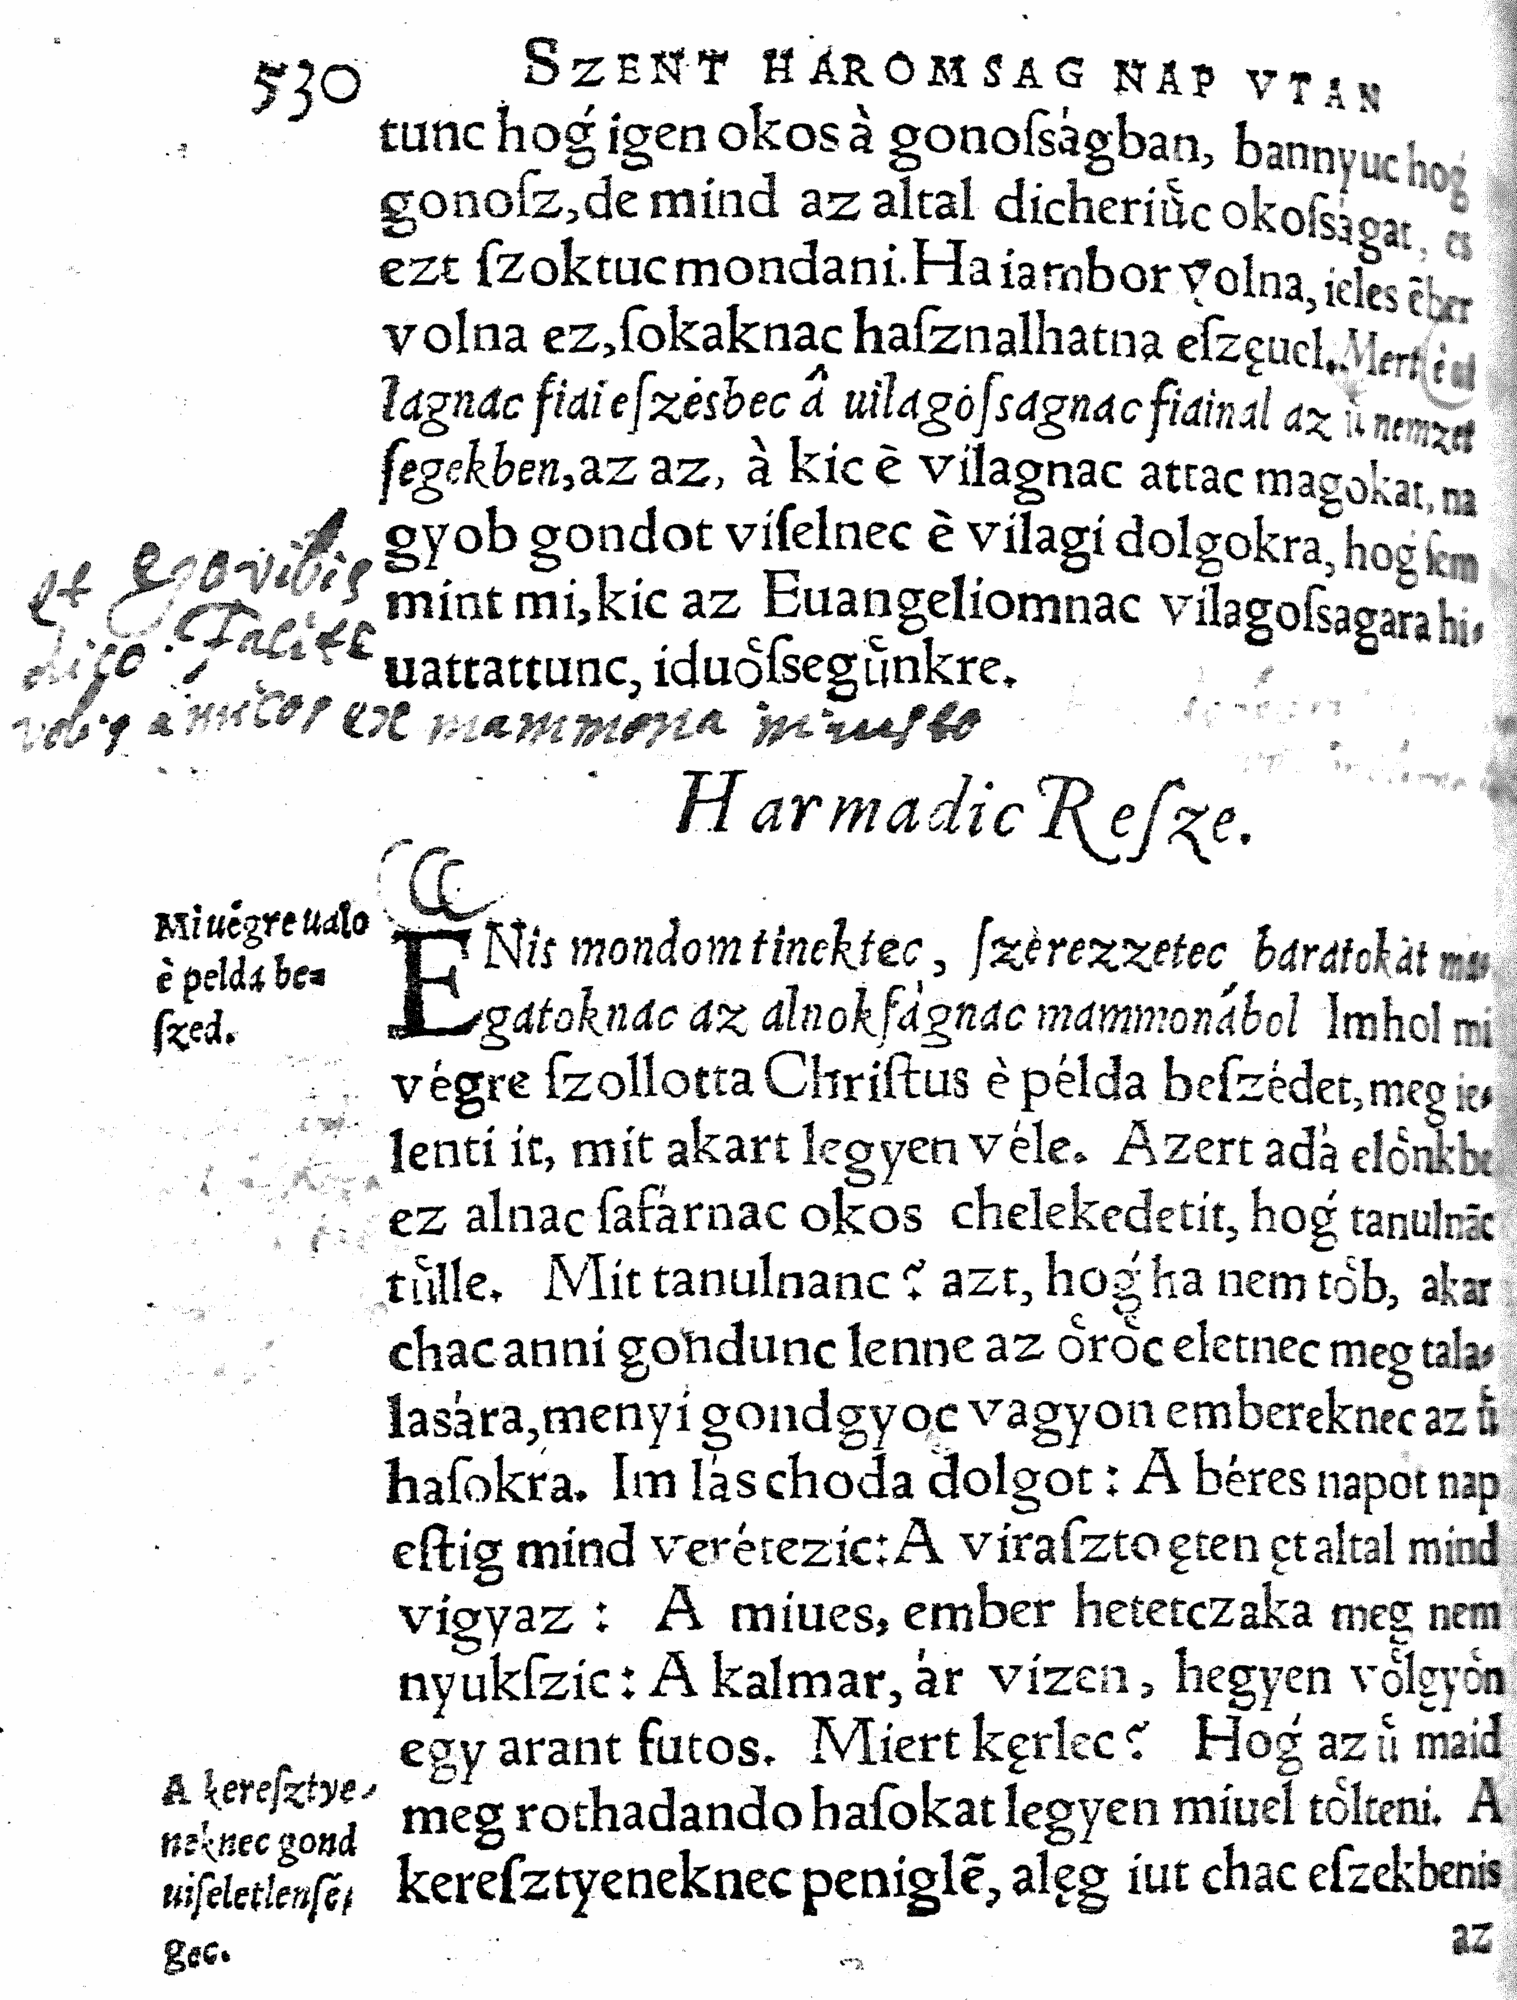 530 SZENT HAROMSAG NAP VTAN
tunc hoǵ igen okos à gonoſságban, bannyuc hoǵ
gonoſz, de mind az altal dicheriuͤc okoſságat, es
ezt ſzoktuc mondani. Ha iambor volna, ieles ẽber
volna ez, ſokaknac haſznalhatna eſzęuel. Mert è ui
lagnac fiai eſzésbec â uilagoſsagnac fiainal az uͤ nemzet
ſegekben, az az, à kic è vilagnac attac magokat, na
gyob gondot viſelnec è vilagi dolgokra, hoǵ ſem
mint mi, kic az Euangeliomnac vilagoſsagara hi-
uattattunc, iduoͤſseguͤnkre.
et ego vobis
dico. Facite
vobis amicos ex mammona iniusto
Harmadic Reſze.
Mi uégre ualo
è pelda be-
ſzed.
ENis mondom tinektec, ſzèrezzetec baratokàt ma-
gatoknac az alnokſágnac mammonábol Imhol mi
végre ſzollotta Chriſtus è példa beſzédet, meg ie-
lenti it, mit akart legyen véle. Azert adá eloͤnkbe
ez alnac ſafárnac okos chelekedetit, hoǵ tanulnãc
tuͤlle. Mit tanulnanc? azt, hoǵ ha nem toͤb, akar
chac anni gondunc lenne az oͤroͤc eletnec meg tala-
lasára, menyi gondgyoc vagyon embereknec az uͤ
haſokra. Im lás choda dolgot: A béres napot nap
eſtig mind verétezic: A viraſzto ęten ęt altal mind
vigyaz: A miues, ember hetetczaka meg nem
nyukſzic: A kalmar, ár vizen, hegyen voͤlgyoͤn
egy arant futos. Miert kęrlec? Hoǵ az uͤ maid
meg rothadando haſokat legyen miuel toͤlteni. A
kereſztyeneknec peniglẽ, alęg iut chac eſzekbenis
A kereſztye-
neknec gond
uiſeletlenſé-
gec.
az